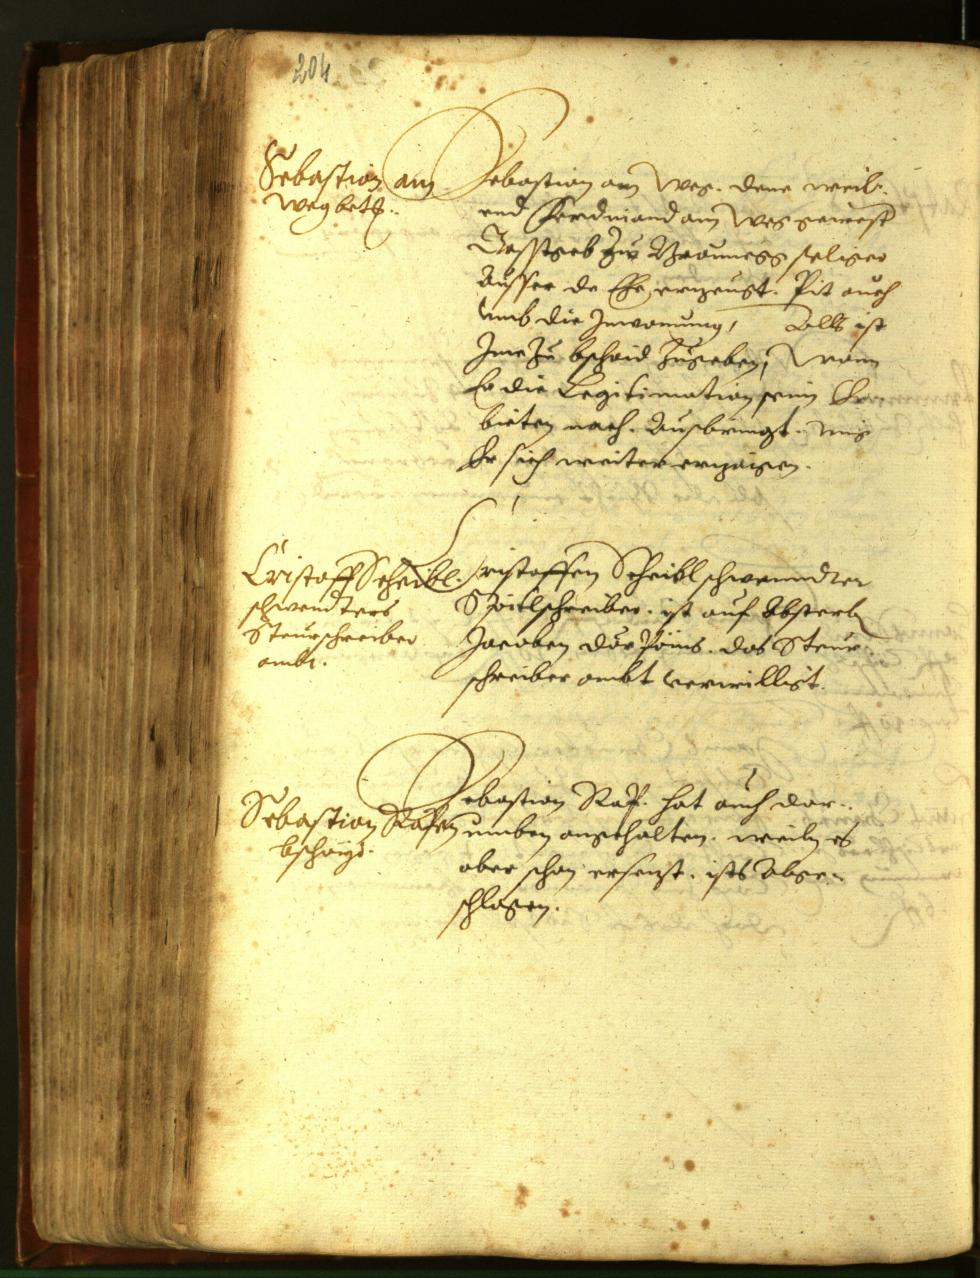 204
Sebastian am
Weg betr.
Sebastian am Weg. dene weil-
end Ferdinand am Weg gewest
Gasstgeb zu Brauneggs seliger
Ausser de Ehe erzeugt. Pit auch
umb die Inwonung, Alls ist
Ime zu bschaid zugeben, Wann
Er die Legitimation seim Er
bieten nach. Ausbringt. mug
Er sich weiter erzaigen.
Cristoff Scheibl-
schwendters
Steurschreiber
ambt.
Cristoffen Scheibl schwenndter
Spitlschreiber. ist auf Absterb
Jacoben das Steur-
schreiber ambt verwilligt.
Sebastian Räsen
bschaid.
Sebastian Räs. hat auch dar-
umben angehalten. weiln es
aber schon ersetzt. ists Abge-
schlagen.